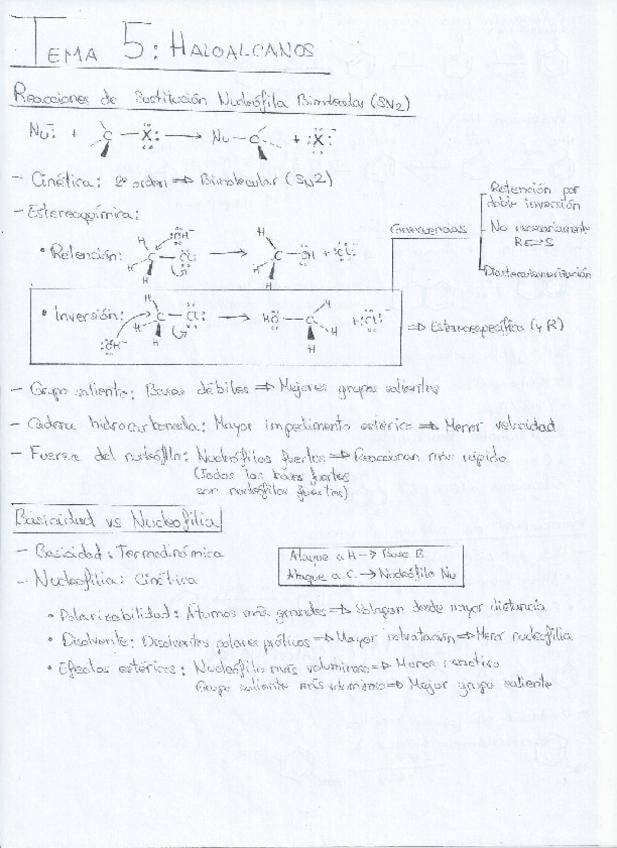 TEMA 5: HALOALCANOS
Reacciones de Sustitución Nucleófila Bimolecular (SN2)
Nu:⁻ + C — X → Nu — C + :X:⁻
- Cinética: 2º orden ⇒ Bimolecular (SN2)
- Estereoquímica:
• Retención: H H H C — Cl: :OH⁻ → H H H C — OH + :Cl:⁻
• Inversión: H H H C — Cl: :OH⁻ → HO — C H H H + :Cl:⁻ ⇒ Estereoespecífica (4R)
Consecuencias
Retención por
doble inversión
No necesariamente
R⇌S
Diastereoisomerización
- Grupo saliente: Bases débiles ⇒ Mejores grupos salientes
- Cadena hidrocarbonada: Mayor impedimento estérico ⇒ Menor velocidad
- Fuerza del nucleófilo: Nucleófilos fuertes ⇒ Reaccionan más rápido
(Todas las bases fuertes
son nucleófilos fuertes)
Basicidad vs Nucleofilia
- Basicidad: Termodinámica
- Nucleofilia: Cinética
Ataque a H → Base B
Ataque a C → Nucleófilo Nu
• Polarizabilidad: Átomos más grandes ⇒ Solapan desde mayor distancia
• Disolvente: Disolventes polares próticos ⇒ Mayor solvatación ⇒ Menor nucleofilia
• Efectos estéricos: Nucleófilo más voluminoso ⇒ Menos reactivo
Grupo saliente más voluminoso ⇒ Mejor grupo saliente